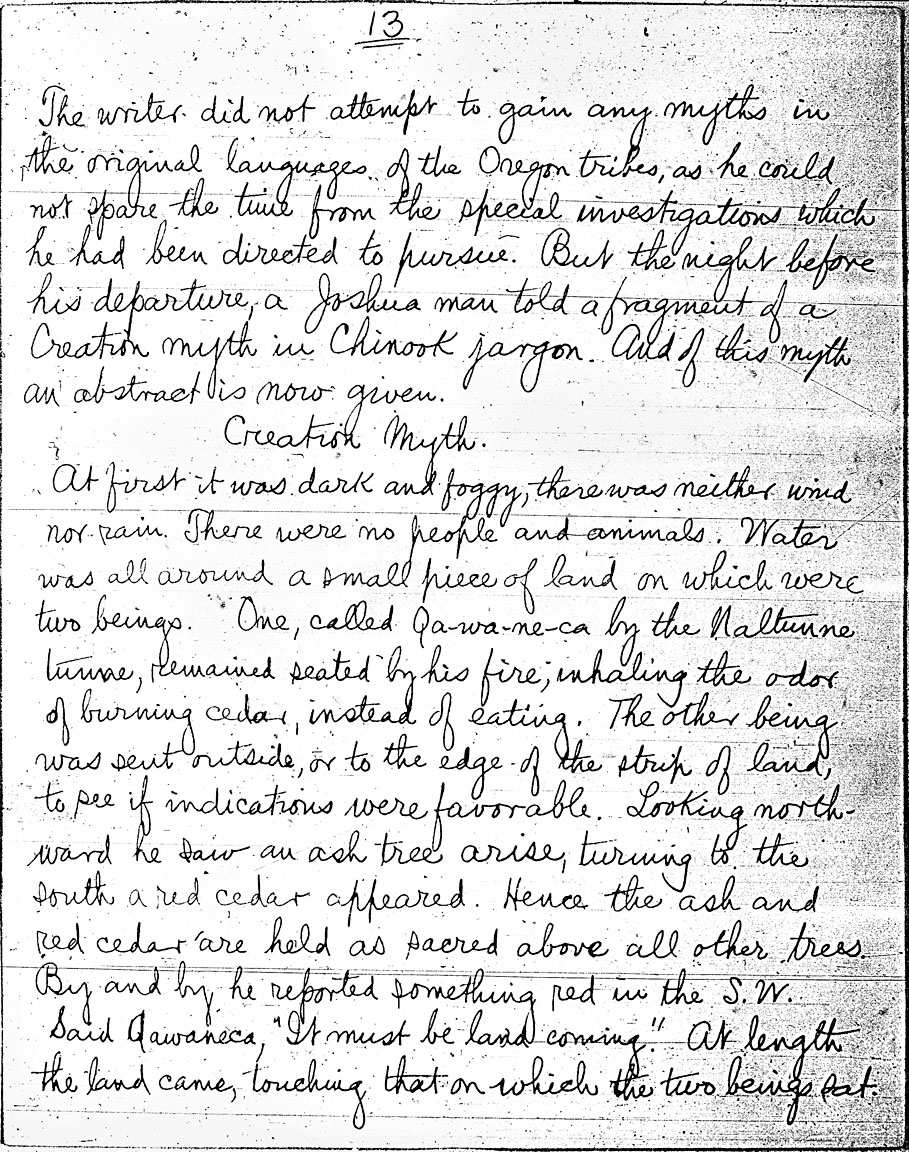 13
The writer did not attempt to gain any myths in
the original languages of the Oregon tribes, as he could
not spare the time from the special investigations which
he had been directed to pursue. But the night before
his departure, a Joshua man told a fragment of a
Creation myth in Chinook jargon. And of this myth
an abstract is now given.
Creation Myth.
At first it was dark and foggy, there was neither wind
nor rain. There were no people and animals. Water
was all around a small piece of land on which were
two beings. One, called Qa-wa-ne-ca by the Naltunne
tunne, remained seated by his fire, inhaling the odor
of burning cedar, instead of eating. The other being
was sent outside, or to the edge of the strip of land,
to see if indications were favorable. Looking north-
ward he saw an ash tree arise, turning to the
south a red cedar appeared. Hence the ash and
red cedar are held as sacred above all other trees.
By and by he reported something red in the S.W.
Said Qawaneca, "It must be land coming". At length
the land came, touching that on which the two beings sat.